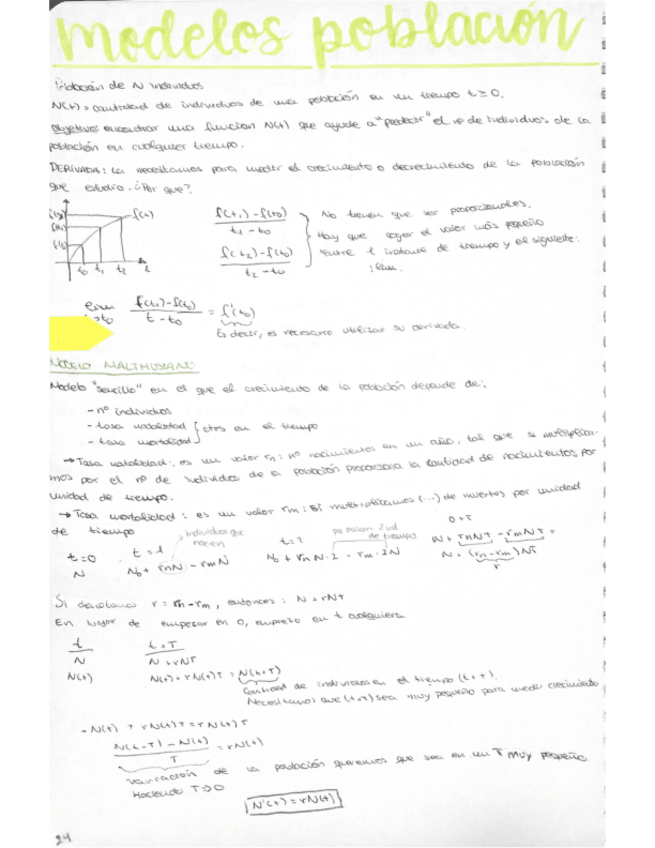 modelos población
Población de N individuos
N(t) = cantidad de individuos de una población en un tiempo t ≥ 0.
Objetivos encontrar una funcion N(t) que ayude a "predecir" el nº de individuos de la
población en cualquier tiempo.
DERIVADA: La necesitamos para medir el crecimiento o decrecimiento de la población
que estudio. ¿Por que?
f(t)
t0 t1 t2 t
f(t1) - f(t0)
t1 - t0
f(t2) - f(t0)
t2 - t0
No tienen que ser proporcionales.
Hay que coger el valor más pequeño
entre t instante de tiempo y el siguiente:
lim
f(t1) - f(t0)
t - t0
= f'(t0)
Es decir, es necesario utilizar su derivada.
MODELO MALTHUSIANO
Modelo "sencillo" en el que el crecimiento de la población depende de:
- nº individuos
- tasa natalidad
- tasa mortalidad
ctes en el tiempo
→ Tasa natalidad: es un valor rn: nº nacimientos en un año, tal que si multiplica-
mos por el nº de individuos de la población proporciona la cantidad de nacimientos por
unidad de tiempo.
→ Tasa mortalidad: es un valor rm: si multiplicamos (...) de muertos por unidad
de tiempo
individuos que
nacen
de tiempo
0+T
t=0
t=1
t=2
N
N0 + rnN - rmN
N0 + rnN·2 - rm·2N
N + rnNT - rmNT =
N + (rn - rm)NT
r
Si denotamos r = rn - rm, entonces: N + rNT
En lugar de empezar en 0, empiezo en t cualquiera
t
t+T
N
N + rNT
N(t)
N(t) + rN(t)T = N(t+T)
Cantidad de individuos en el tiempo (t+T).
Necesitamos que (t+T) sea muy pequeño para medir crecimiento
- N(t) + rN(t)T = rN(t)T
N(t-T) - N(t)
T
= rN(t)
Variación de la población queremos que sea en un T muy pequeño
Haciendo T→0
N'(t) = rN(t)
24